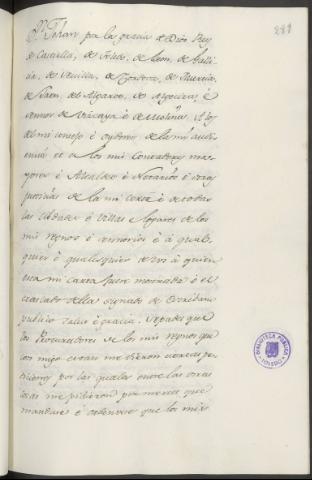 289
D. Johan por la gracia de Dios Rey
de Castilla, de Toledo, de Leon, de Galli-
cia, de Sevilla, de Cordova, de Murcia,
de Jaen, del Algarve, de Algecira, é
sennor de Vizcaya é de Molina. A los
del mi consejo é oydores de la mi audi-
encia et a los mis Contadores ma-
yores é Alcaldes é Notarios é otras
justicias de la mi corte é de todas
las cibdades é villas e logares de los
mis regnos é sennorios é á qual-
quier é qualesquier de vos á quien
esta mi carta fuere mostrada é el
traslado della signado de Escribano
publico salud é gracia. Sepades que
los Procuradores de los mis regnos que
con migo estan me dieron ciertas pe-
ticiones por las quales entre las otras
cosas me pidieron por merced que
mandase é ordenase que los mis
BIBLIOTECA PUBLICA
TOLEDO